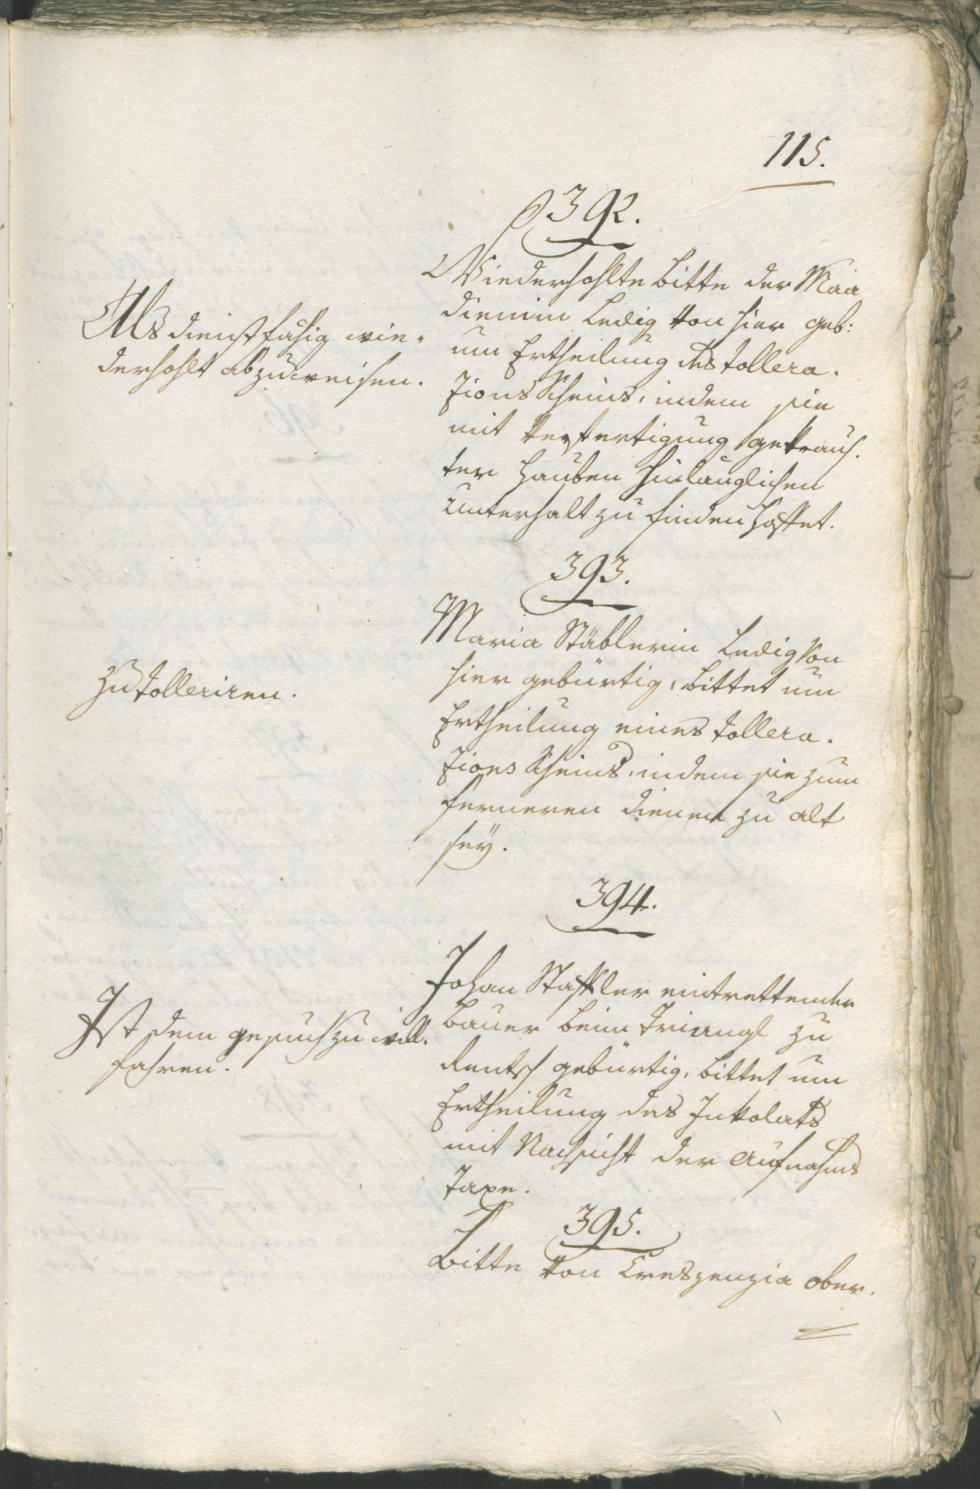 115.
392.
Wiederhohlte Bitte der Maa
dienin ledig von hier geb:
um Ertheilung des tollera-
zions Scheins, indem sie
mit Verfertigung gekraus-
ter Hauben hinlänglichen
Unterhalt zu finden hoffet.
Als dienstfähig wie-
derhohlt abzuweisen.
393.
Maria Stäblerin ledig von
hier gebürtig, bittet um
Ertheilung eines tollera-
zions Scheins, indem sie zum
ferneren dienen zu alt
sey.
Zu tolleriren.
394.
Johan Staffler eintrettender
Bauer beim Triangl zu
Rentsch gebürtig, bittet um
Ertheilung des Inkolats
mit Nachsicht der Aufnahms
Taxe.
Ist dem gesuch zu will-
fahren.
395.
Bitte von Creszenzia Ober-